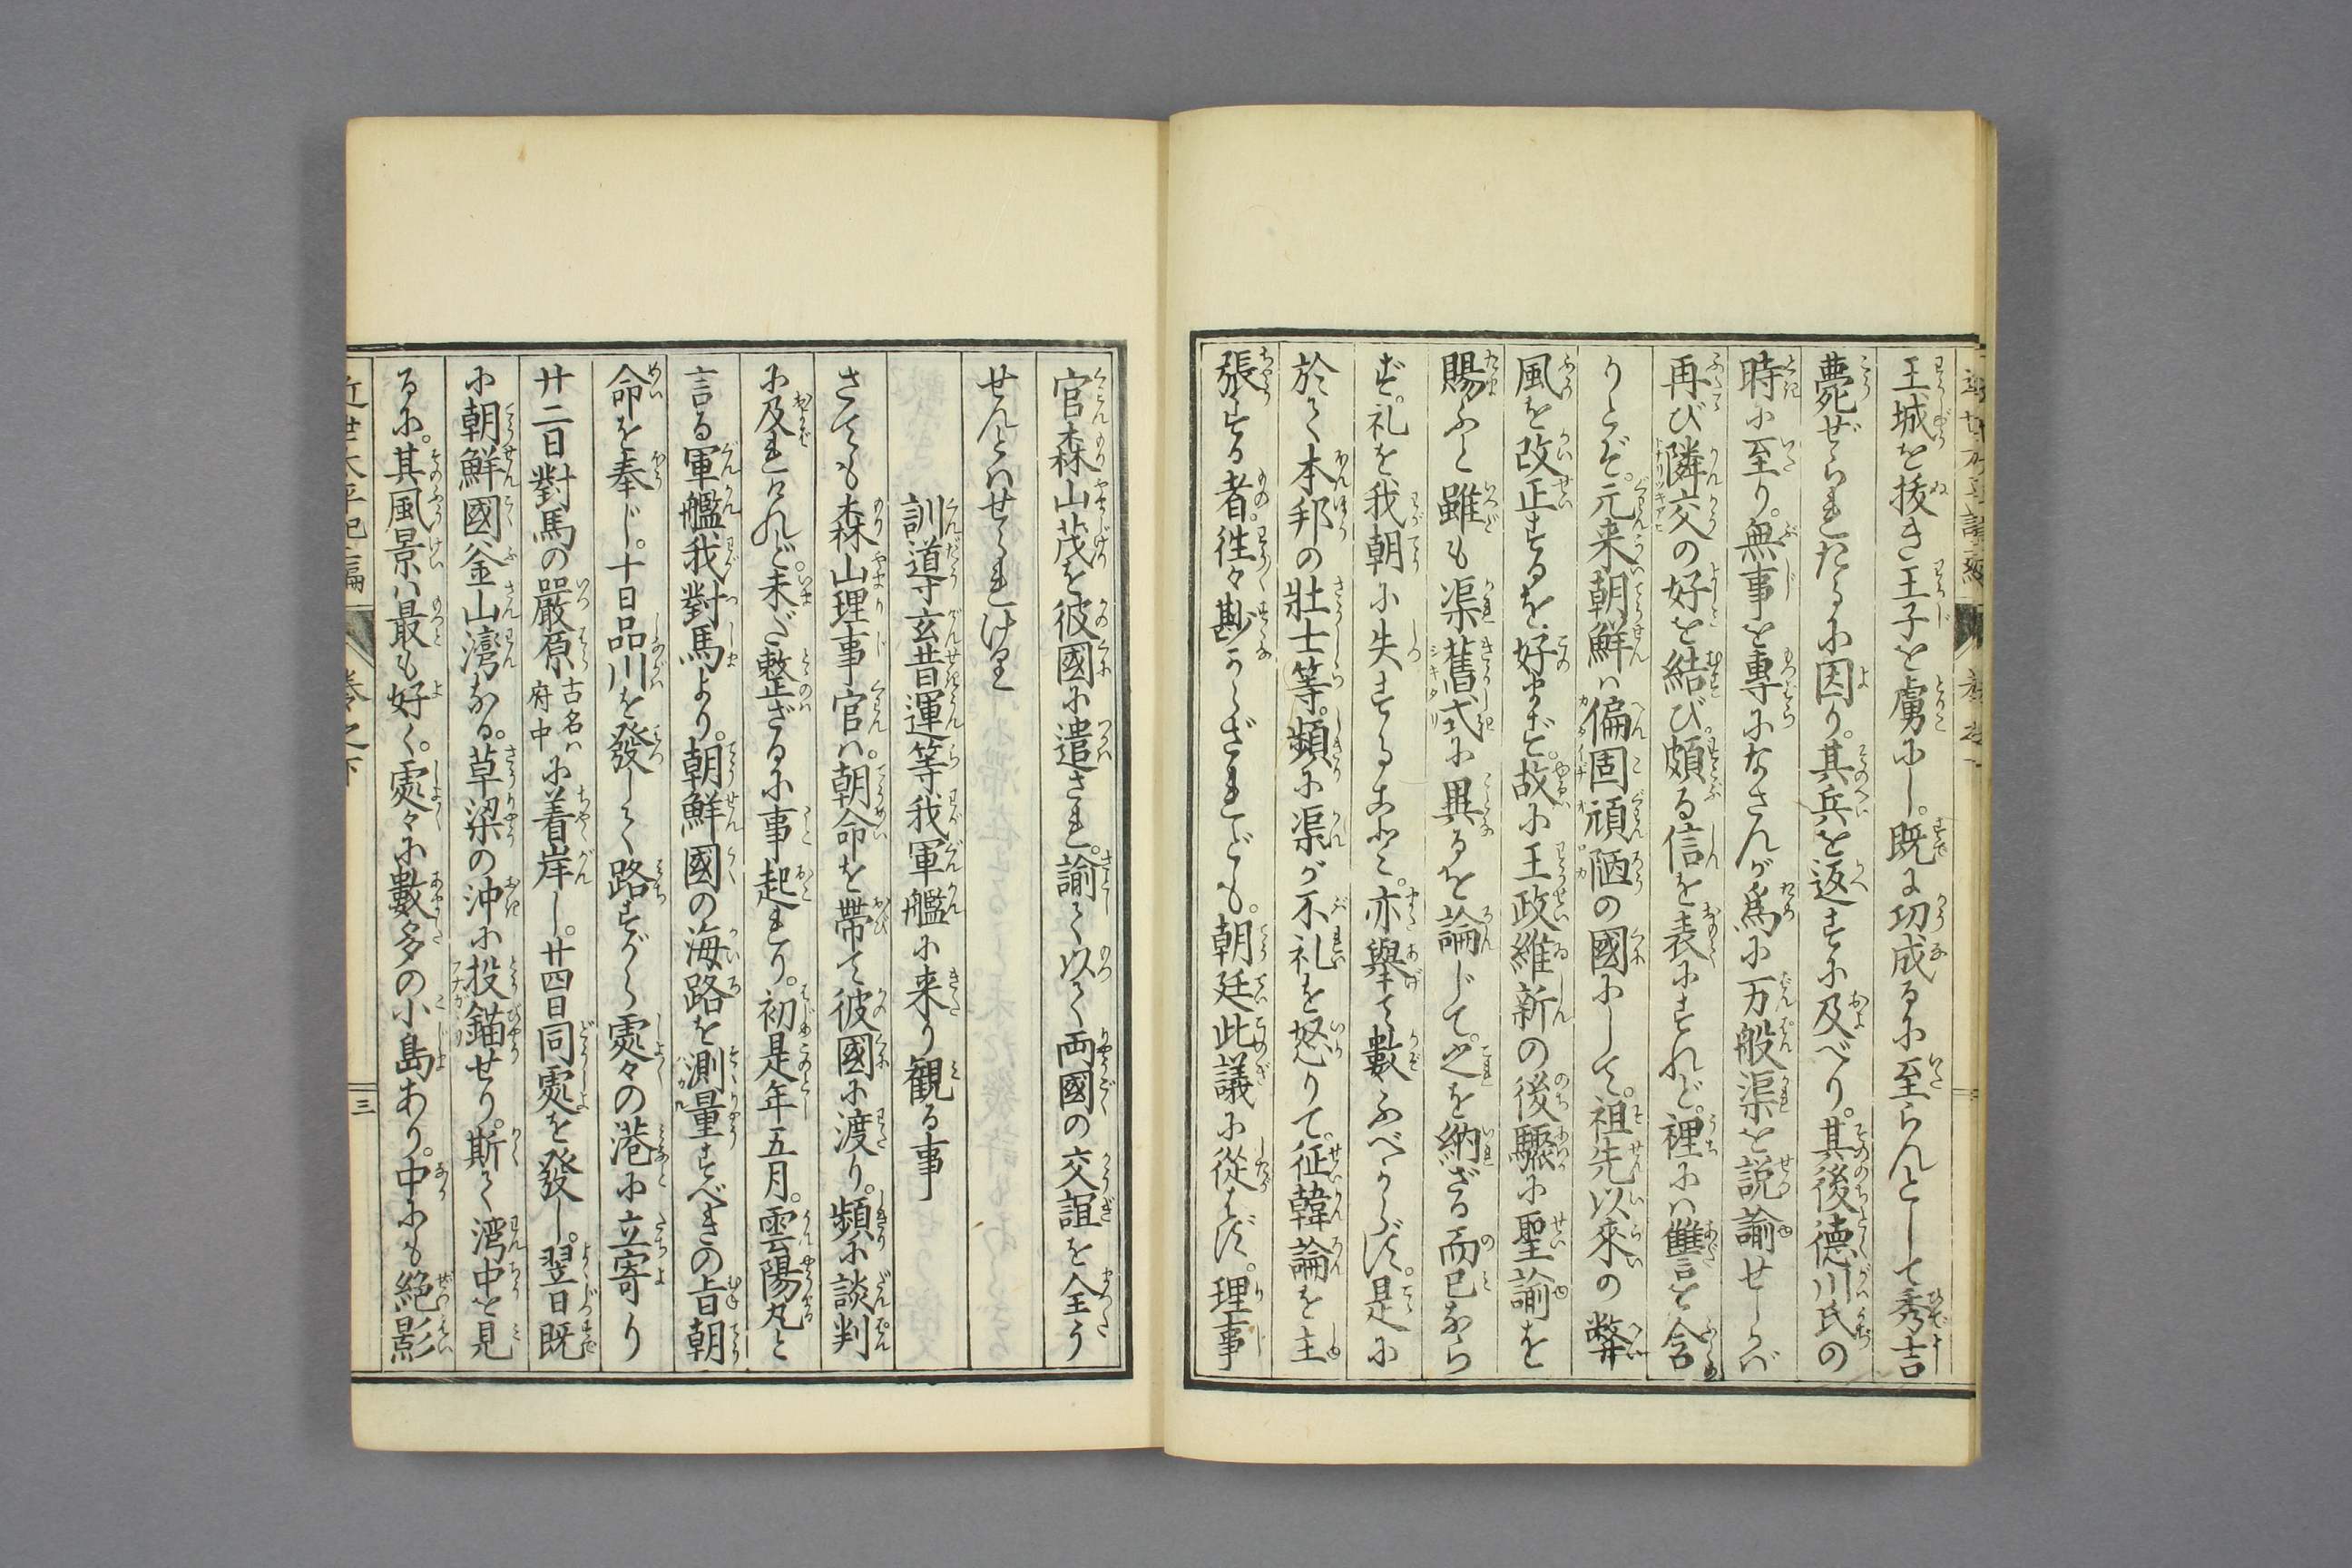 王城を抜き王子を虜にし。既に功成るに至らんとして秀吉
薨ぜられたるに因り。其兵を返すに及べり。其後徳川氏の
時に至り。無事を專になさんが爲に万般渠を説諭せしかば
再び隣交の好を結び。頗る信を表にすれど。裡には讐を含め
りとぞ。元来朝鮮は偏固頑陋の國にして。祖先以來の弊
風を改正するを好まず。故に王政維新の後驟に聖諭を
賜ふと雖も渠舊式に異るを論じて。之を納ざる而已なら
ず。礼を我朝に失すること。亦擧て數ふべからず。是に
於て本邦の壯士等。頻に渠が不礼を怒りて。征韓論を主
張する者。往々尠からざれども。朝廷此議に從はず。理事
官森山茂を彼國に遣され。諭て以て両國の交誼を全う
せんとはせられけり
訓導玄昔運等我軍艦に来り観る事
さても森山理事官は。朝命を帶て彼國に渡り。頻に談判
に及れけれど。未だ整ざるに事起れり。初是年五月。雲陽丸と
言る軍艦我對馬より。朝鮮國の海路を測量すべきの旨朝
命を奉じ。十日品川を發して路すがら處々の港に立寄り
廿二日對馬の嚴原古名は府中に着岸し。廿四日同處を發し。翌日既
に朝鮮國釜山灣なる。草梁の沖に投錨せり。斯て湾中を見
るに。其風景は最も好く。處々に數多の小島あり。中にも絶影
近世太平記二編 巻之下 三